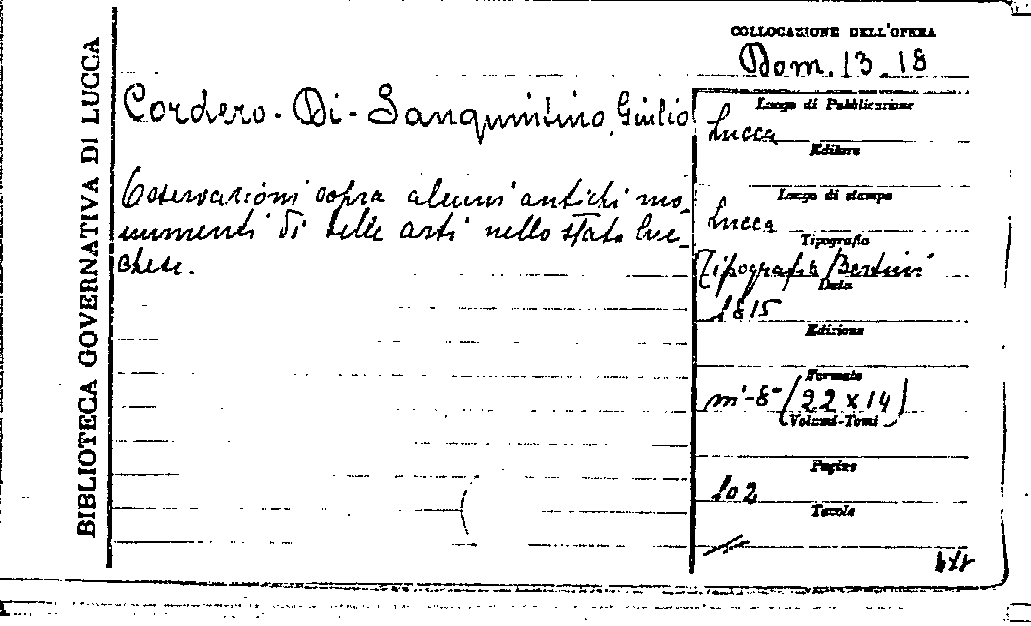 BIBLIOTECA GOVERNATIVA DI LUCCA
COLLOCAZIONE DELL'OPERA
Dom. 13. 18
Cordero - Di - Sanquintino, Giulio
Osservazioni sopra alcuni antichi mo-
numenti di belle arti nello stato luc-
chese.
Luogo di Pubblicazione
Lucca
Editore
Luogo di stampa
Lucca
Tipografia
Tipografia Bertini
Data
1815
Edizione
Formato
in-8° (22 x 14)
Volumi-Tomi
Pagine
102
Tavole